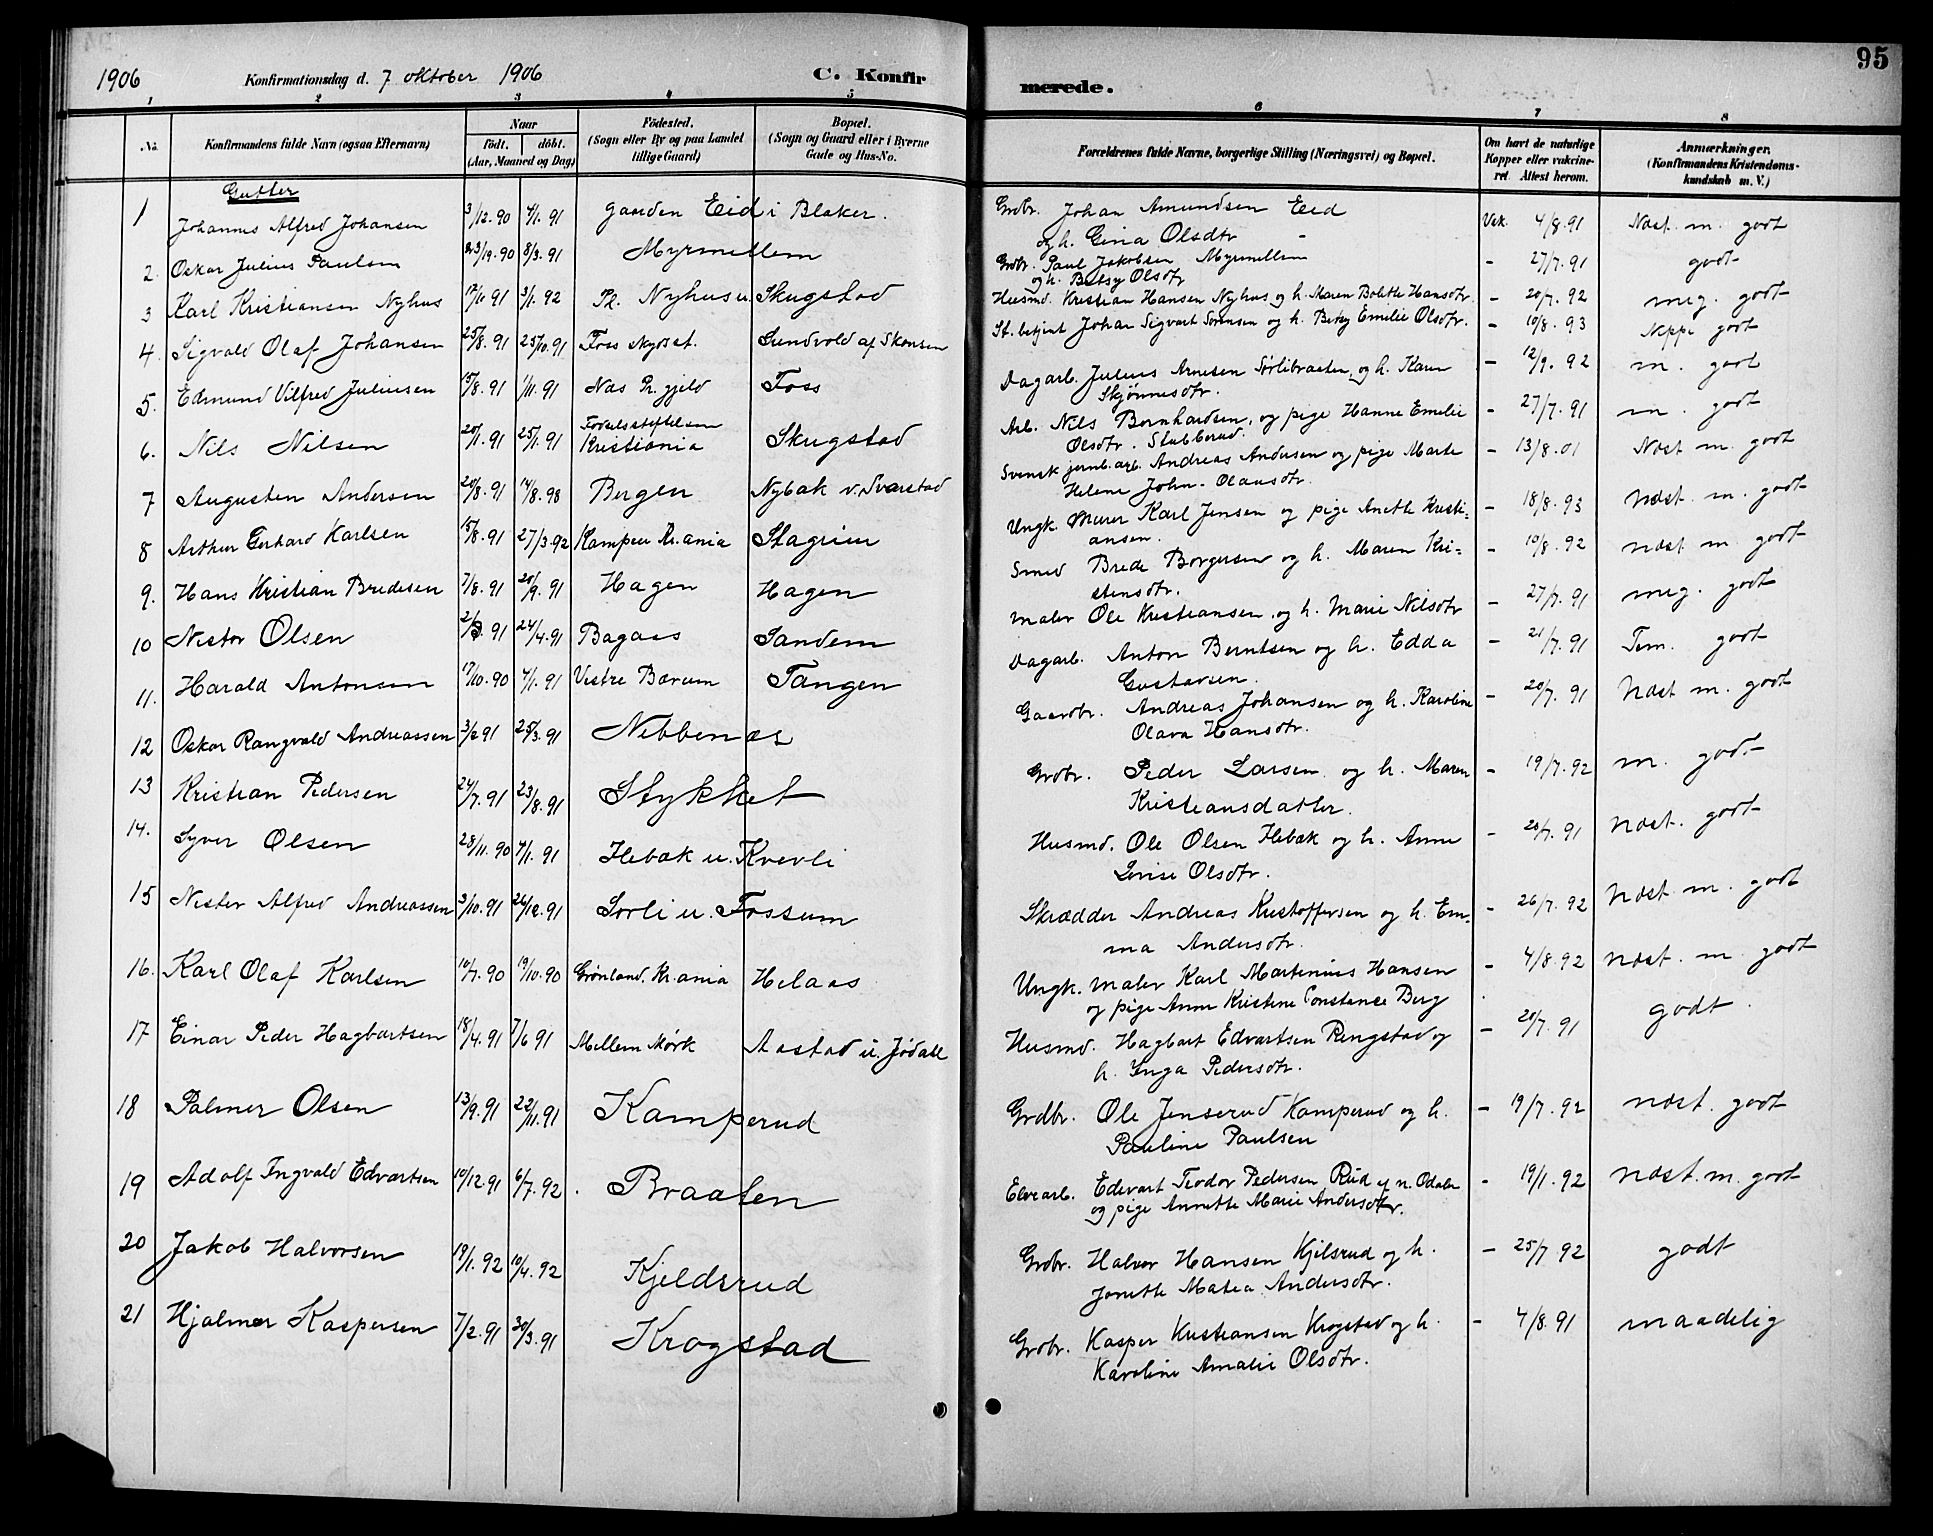 95
1906 Konfirmationsdag d. 7 oktober 1906 C. Konfirmerede.
1 2 3 4 5 6 7 8
No. Konfirmandens fulde Navn (ogsaa Efternavn) Naar født. døbt. (Aar, Maaned og Dag) Fødested. (Sogn eller By og paa Landet tillige Gaard) Bopæl. (Sogn og Gaard eller i Byerne Gade og Hus-No. Forældrenes fulde Navne, borgerlige Stilling (Næringsvei) og Bopæl. Om havt de naturlige Kopper eller vakcineret. Attest herom. Anmærkninger. (Konfirmandens Kristendomskundskab m. V.)
Gutter
1 Johannes Alfred Johansen 3/12.90 4/1.91 gaarden Eid i Blaker. Grdbr. Johan Amundsen Eid Vak. 4/8.91 Næst. m. godt
og h. Gina Olsdtr
2. Oskar Julius Paulsen 23/12.90 8/3.91 Myrmellem Grdbr. Paul Jakobsen Myrmellem - 27/7.91 godt
og h. Betsy Olsdtr
3 Karl Kristiansen Nyhus 17/11.91 3/1.92 Pl. Nyhus u. Skugstad Husmd. Kristian Hansen Nyhus og h. Maren Bolette Hansdtr. - 20/7.92 meg. godt
4. Sigvald Olaf Johansen 25/8.91 25/10.91 Foss skydsst. Sundvold af Skansen St. betjent Johan Sigvart Sørensen og h. Betsy Emelie Olsdtr. - 10/8.93 Neppe godt
5. Edmund Vilfred Juliusen 15/8.91 1/11.91 Næs Pr.gjeld Foss Dagarb. Julius Arnesen Sørlibraaten, og h. Karen - 12/9.92 m. godt
Skjønnesdtr.
6. Nils Nilsen 20/1.91 25/1.91 Fødselsstiftelsen Kristiania Skugstad Arb. Nils Bernhardsen, og pige Hanne Emelie - 27/7.91 m. godt
Olsdtr. Stubberud.
7 Augusten Andersen 20/8.91 14/8.98 Bergen Nybak v. Svarstad Svensk jernb. arb. Andreas Andersen og pige Marte - 13/8.01 Næst m. godt
Helene John-Olausdtr.
8 Arthur Gerhard Karlsen 15/8.91 27/3.92 Kampen Kr.ania Stagrim Ungk. Murer Karl Jensen og pige Anette Kristi= - 18/8.93 Næst. m. godt
ansen.
9. Hans Kristian Bredesen 7/8.91 20/9.91 Hagen Hagen Smed Brede Borgersen og h. Maren Kri= - 10/8.92 næst m. godt
stensdtr.
10 Nestor Olsen 2/3.91 24/4.91 Bagaas Sandem maler Ole Kristiansen og h. Marie Nilsdtr - 27/7.91 meg. godt
11. Harald Antonsen 17/10.90 4/1.91 Vestre Bærum Tangen Dagarb. Anton Berntsen og h. Edda - 21/7.91 Tem. godt
Gustavsen.
12 Oskar Rangvald Andreassen 3/2 91 25/3.91 Nebbenæs Gaardbr. Andreas Johansen og h. Karoline - 20/7.91 Næst m. godt
Olava Hansdtr.
13 Kristian Pedersen 24/7.91 23/8.91 Stykket Grdbr. Peder Larsen og h. Maren - 19/7.92 m. godt
Kristiansdatter.
14. Syver Olsen 28/11.90 4/1.91 Ilebæk u. Kverli Husmd. Ole Olsen Ilebæk og h. Anne - 20/7.91 næst. godt
Lovise Olsdtr.
15 Nester Alfred Andreassen 3/10.91 26/12.91 Sørli u. Fossum Skrædder Andreas Kristoffersen og h. Em= - 26/7.92 Næst m. godt
ma Andersdtr.
16. Karl Olaf Karlsen 10/7.90 19/10.90 Grønland, Kr.ania Helaas Ungk. maler Karl Martinius Hansen - 4/8.92 næst. m. godt
og pige Anne Kristine Constance Berg
17 Einar Peder Hagbartsen 18/4.91 7/6 91 Mellem Mørk Aastad u. Jødahl Husmd. Hagbart Edvartsen Ringstad og - 20/7.91 godt.
h. Inga Pedersdtr.
18 Palmer Olsen 13/9.91 22/11.91 Kamperud Grdbr. Ole Jenserud Kamperud og h. - 19/7.92 næst. godt
Pauline Paulsen
19 Adolf Ingvald Edvartsen 10/12.91 6/7.92. Braaten Elvearb. Edvart Teodor Pedersen Rud af n. Odalen - 19/1.92 næst. m. godt
og pige Annette Marie Andersdtr.
20 Jakob Halvorsen 19/1.92 10/4.92 Kjeldsrud Grdbr. Halvor Hansen Kjelsrud og h. - 25/7 92 godt
Jonette Matea Andersdtr.
21 Hjalmar Kaspersen 7/2.91 30/3.91 Krogstad Grdbr. Kasper Kristiansen Krogstad og h. - 4/8.91 maadelig
Karoline Amalie Olsdtr.